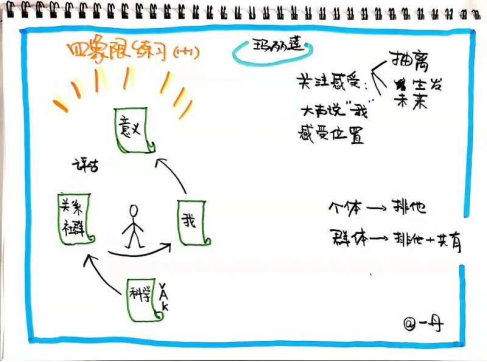 四象限练习(1+1)
玛丽莲
关注感受：
抽离
发生
未来
大声说"我"
感受位置
意义
评估
关系
社群
我
科学
V
A
K
个体→排他
群体→排他+共有
@一丹